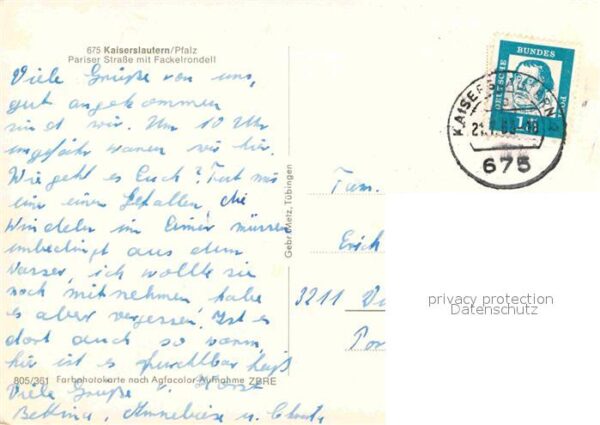 675 Kaiserslautern/Pfalz
Pariser Straße mit Fackelrondell
Viele Grüße von uns,
gut angekommen
sind wir. Um 10 Uhr
ungefähr waren wir hier.
Wie geht es Euch? Tut mir
nur einen Gefallen, die
Windeln im Eimer müssen
unbedingt aus dem
Wasser, ich wollte sie
noch mitnehmen habe
es aber vergessen! Ist es
dort auch so warm,
hier ist es furchtbar heiß
805/361 Farbphotokarte nach Agfacolor-Aufnahme ZBRE
Viele Grüße v. Horst
Bettina, Anneliese u.
Gebr. Metz, Tübingen
DEUTSCHE BUNDESPOST
KAISERSLAUTERN
675
Fam.
Erich
3211
privacy protection
Datenschutz